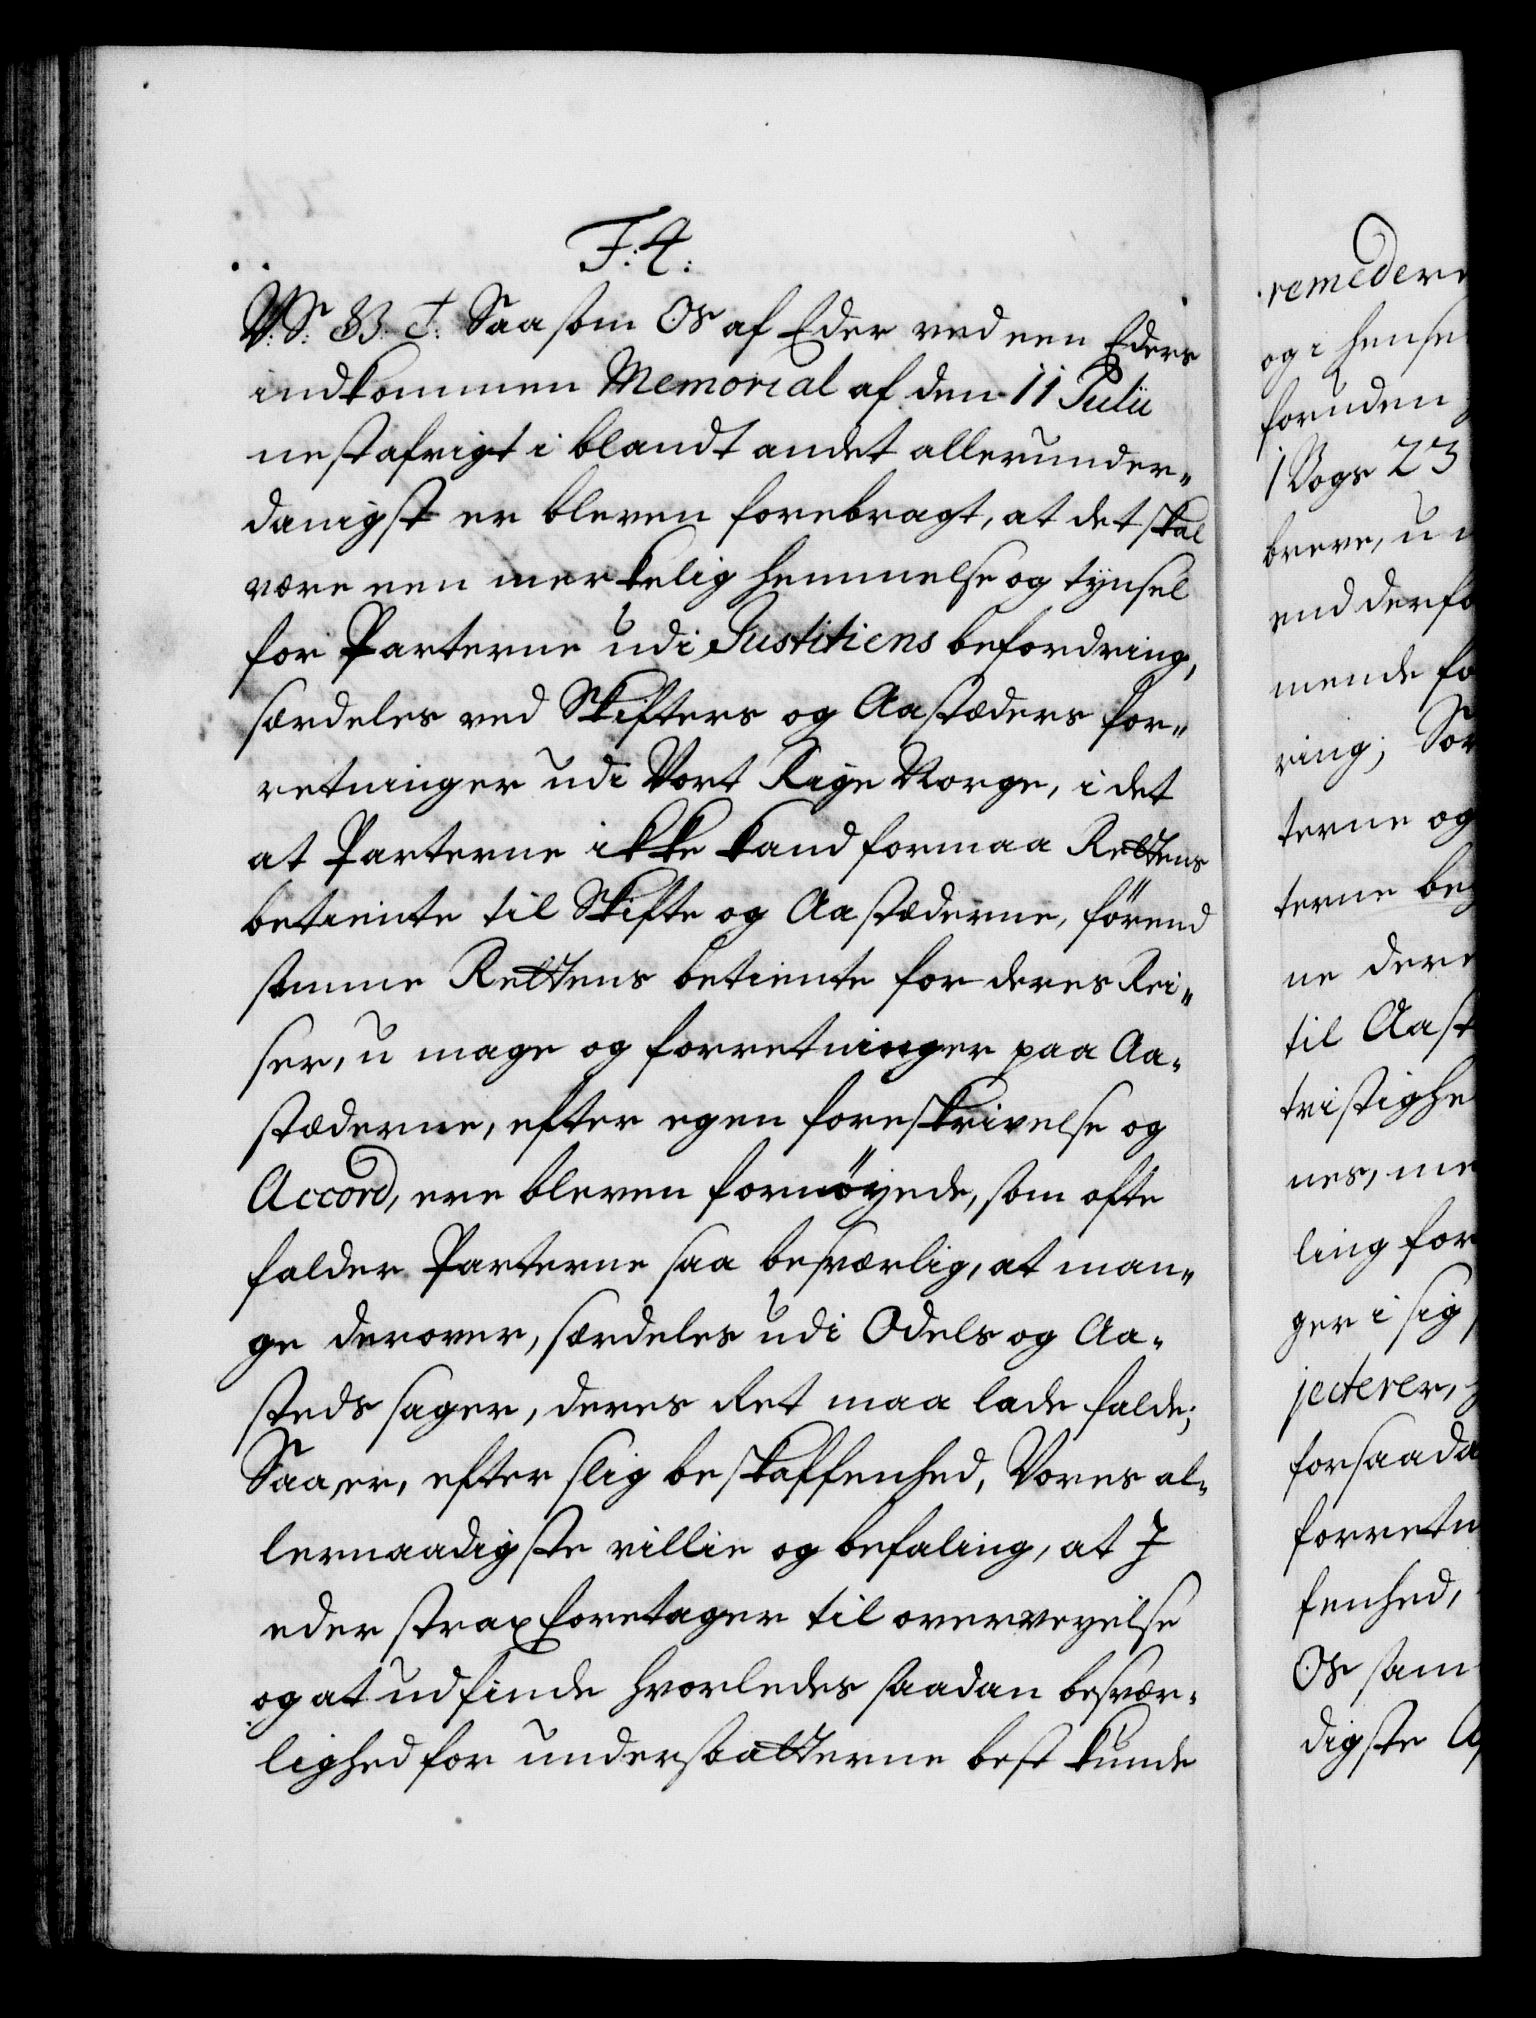 F. 4.
V. S. B. T. Saasom Os af Eder ved een Eders
indkommen Memorial af den 11 Julii
nestafvigt i blandt andet allerunder„
danigst er bleven forebragt, at det skal
være een merkelig hemmelse og tyngsel
for Parterne udi Justitiens befordring,
særdeles ved Skifters og Aastæders for„
retninger udi Vort Rige Norge, i det
at Parterne ikke kand formaa Rettens
betiente til Skifte og Aastæderne, förend
samme Rettens betiente for deres Rei„
ser, umage og forretninger paa Aa„
stæderne, efter egen foreskrivelse og
Accord, ere bleven fornöyede, som ofte
falder Parterne saa besværlig, at man„
ge derover, særdeles udi Odels og Aa„
steds sager, deres Ret maa lade falde;
Saa er, efter slig beskaffenhed, Vores al„
lernaadigste villie og befaling, at I
eder strax foretager til overveyelse
og at udfinde hvorledes saadan besvær„
lighed for undersaatterne best kunde
remedere
og i hense
foruden
1 Bogs 23
breve, u
end derfo
mende fo
ring; For
terne og
terne beg
ne dere
til Aast
tvistighe
nes, me
ling for
ger i sig
jecterer,
forsaada
forretn
fenhed,
Os sam
digste